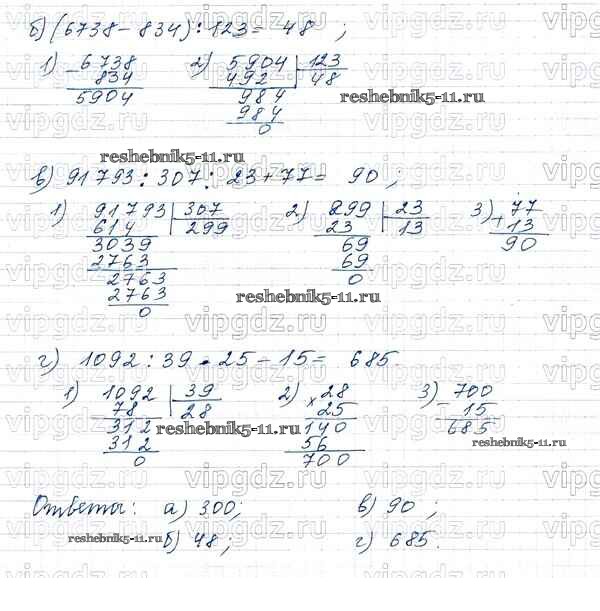 б) (6738 - 834) : 123 = 48 ;
1) 6738 2) 5904 | 123
- 834 492 48
5904 984
984
0
reshebnik5-11.ru
reshebnik5-11.ru
в) 91793 : 307 : 23 + 77 = 90 ;
1) 91793 | 307 2) 299 | 23 3) 77
614 299 23 13 + 13
3039 69 90
2763 69
2763 0
2763
0
reshebnik5-11.ru
г) 1092 : 39 · 25 - 15 = 685.
1) 1092 | 39 2) 28 3) 700
78 28 × 25 - 15
312 140 685
312 56
0 700
reshebnik5-11.ru
reshebnik5-11.ru
Ответы: а) 300; в) 90 ;
reshebnik5-11.ru
б) 48 ; г) 685.
vipgdz.ru